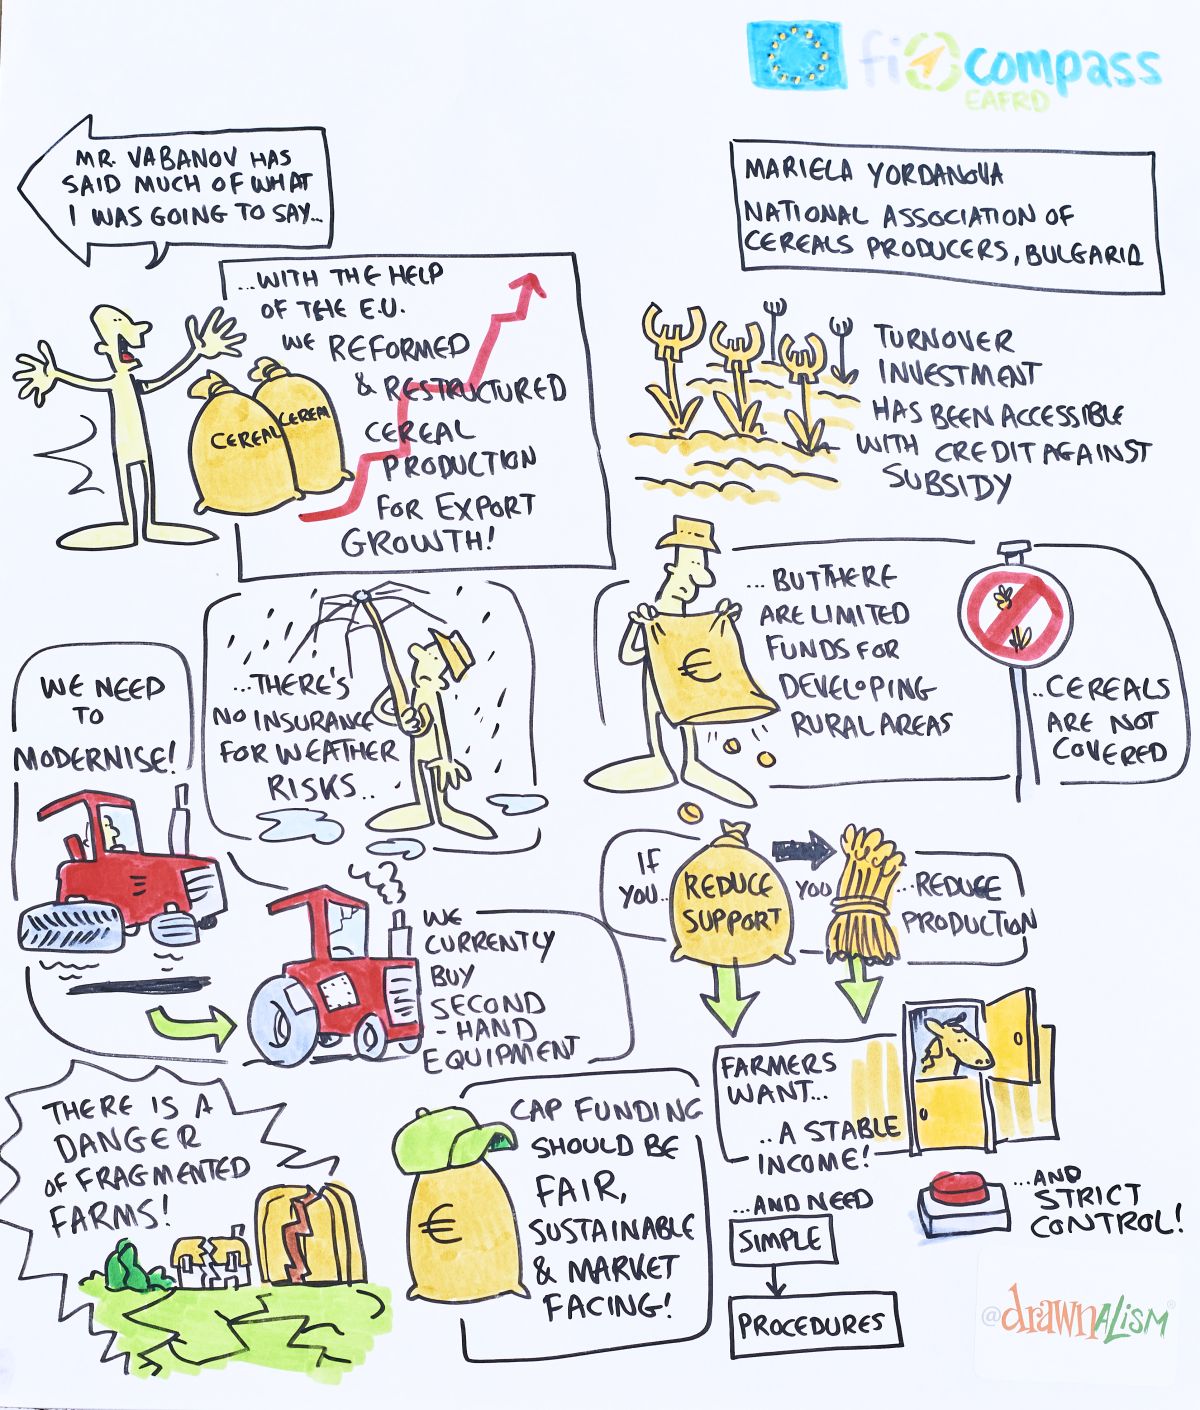 fi compass
EAFRD
MR. VABANOV HAS
SAID MUCH OF WHAT
I WAS GOING TO SAY...
MARIELA YORDANOVA
NATIONAL ASSOCIATION OF
CEREALS PRODUCERS, BULGARIA
...WITH THE HELP
OF THE E.U.
WE REFORMED
& RESTRUCTURED
CEREAL
PRODUCTION
FOR EXPORT
GROWTH!
CEREAL
CEREAL
TURNOVER
INVESTMENT
HAS BEEN ACCESSIBLE
WITH CREDIT AGAINST
SUBSIDY
...BUT THERE
ARE LIMITED
FUNDS FOR
DEVELOPING
RURAL AREAS
€
...CEREALS
ARE NOT
COVERED
WE NEED
TO
MODERNISE!
...THERE'S
NO INSURANCE
FOR WEATHER
RISKS...
WE
CURRENTLY
BUY
SECOND
-HAND
EQUIPMENT
IF
YOU..
REDUCE
SUPPORT
YOU
...REDUCE
PRODUCTION
THERE IS A
DANGER
OF FRAGMENTED
FARMS!
CAP FUNDING
SHOULD BE
FAIR,
SUSTAINABLE
& MARKET
FACING!
€
FARMERS
WANT...
..A STABLE
INCOME!
...AND NEED
SIMPLE
PROCEDURES
...AND
STRICT
CONTROL!
@drawnalism®